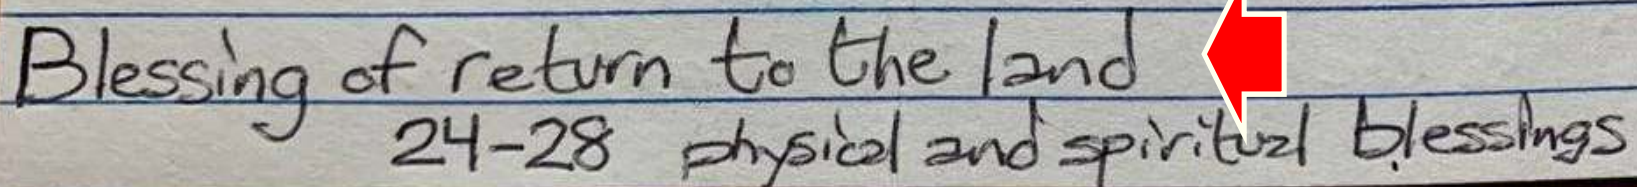 Blessing of return to the land
24-28 physical and spiritual blessings